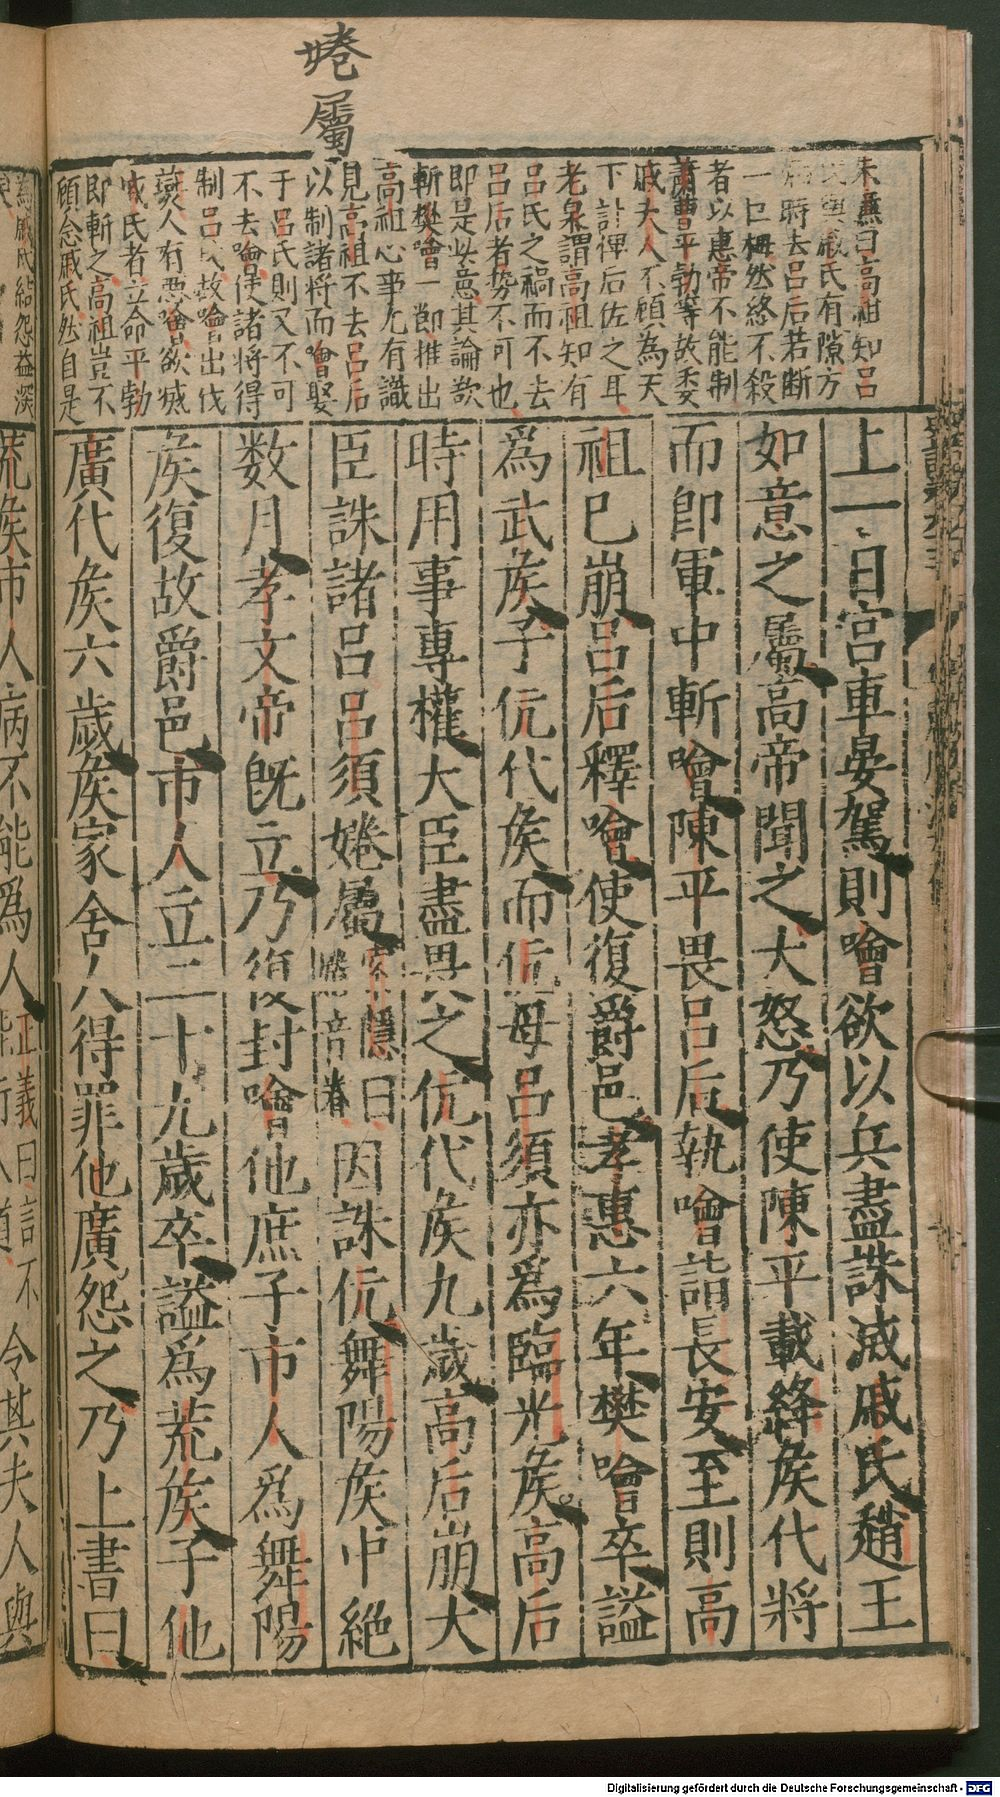 婘屬
朱無曰高祖知呂
后與戚氏有隙方
時去呂后若断
一巨樹然終不殺
者以惠帝不能制
蕭曹平勃等故委
戚夫人不顧為天
下計俾后佐之耳
老泉謂高祖知有
呂氏之禍而不去
呂后者势不可也
即是此意其論欲
斬樊噲一節推出
高祖心事尤有識
見高祖不去呂后
以制諸將而噲娶
于呂氏則又不可
不去噲使諸將得
制呂氏故噲出伐
燕人有惡噲欲滅
戚氏者立命平勃
即斬之高祖豈不
顧念戚氏然自是
上一日宮車晏駕則噲欲以兵盡誅滅戚氏趙王
如意之屬高帝聞之大怒乃使陳平載絳矦代將
而卽軍中斬噲陳平畏呂后執噲詣長安至則高
祖已崩呂后釋噲使復爵邑孝惠六年樊噲卒謚
爲武矦子伉代矦而伉母呂須亦爲臨光矦高后
時用事專權大臣盡畏之伉代矦九歲高后崩大
臣誅諸呂呂須婘屬索隱曰婘音眷因誅伉舞陽矦中絶
数月孝文帝既立乃復封噲他庶子市人爲舞陽
矦復故爵邑市人立二十九歲卒謚爲荒矦子他
廣代矦六歲矦家舍人得罪他廣怨之乃上書曰
為戚氏結怨益深
荒矦市人病不能爲人正義曰言不能行人道令其夫人與
Digitalisierung gefördert durch die Deutsche Forschungsgemeinschaft - DFG